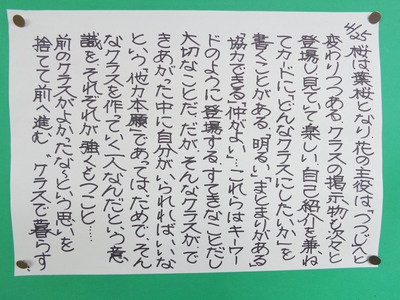 4/25 桜は葉桜となり、花の主役は「つつじ」へと
変わりつつある。クラスの掲示物も次々と
登場し、見ていて楽しい。自己紹介を兼ね
てカードに、"どんなクラスにしたいか"を
書くことがある。「明るい」「まとまりがある」
「協力できる」「仲がよい」…これらはキーワー
ドのように登場する。すてきなことだし
大切なことだ。だが、そんなクラスがで
きあがった中に自分がいられればいいな
という"他力本願"であっては、だめで、そん
なクラスを作っていく一人なんだという意
識を、それぞれが強くもつこと…
前のクラスがよかったな～という思いを
捨てて前へ進む。"クラスで暮らす"